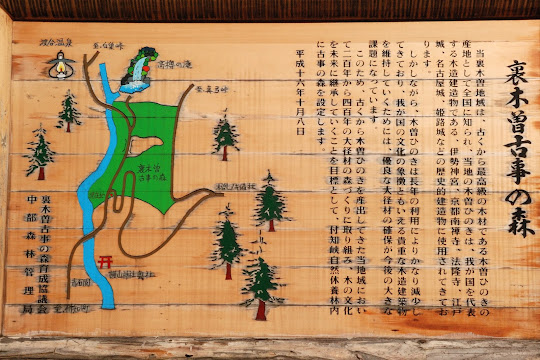 裏木曽古事の森
当裏木曽地域は、古くから最高級の木材である木曽ひのきの
産地として全国に知られ、当地の木曽ひのきは、我が国を代表
する木造建造物である、伊勢神宮、京都南禅寺、法隆寺、江戸
城、名古屋城、姫路城などの歴史的建造物に使用されてきてお
ります。
しかしながら、木曽ひのきは長年の利用によりかなり減少し
てきており、我が国の文化の象徴ともいえる貴重な木造建築物
を維持していくためには、優良な大径材の確保が今後の大きな
課題になっています。
このため、古くから木曽ひのきを産出してきた当地域におい
て二百年から四百年の大径材の森づくりに取り組み、木の文化
を未来に継承していくことを目標として、付知峡自然休養林内
に古事の森を設定します。
平成十六年十月八日
裏木曽古事の森育成協議会
中部森林管理局
渡合温泉
高樽の滝
至真弓峠
裏木曽
古事の森